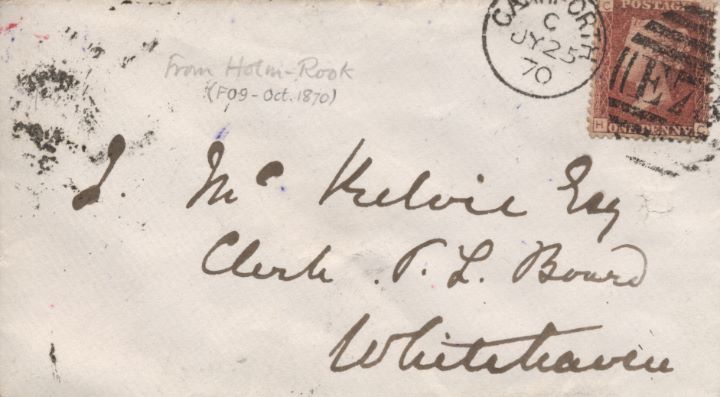 CARNFORTH
C
JY 25
70
C POSTAGE
H ONE PENNY C
From Holm-Rook
(F09 - Oct. 1870)
J. Mc Kelvie Esq
Clerk P. L. Board
Whitehaven